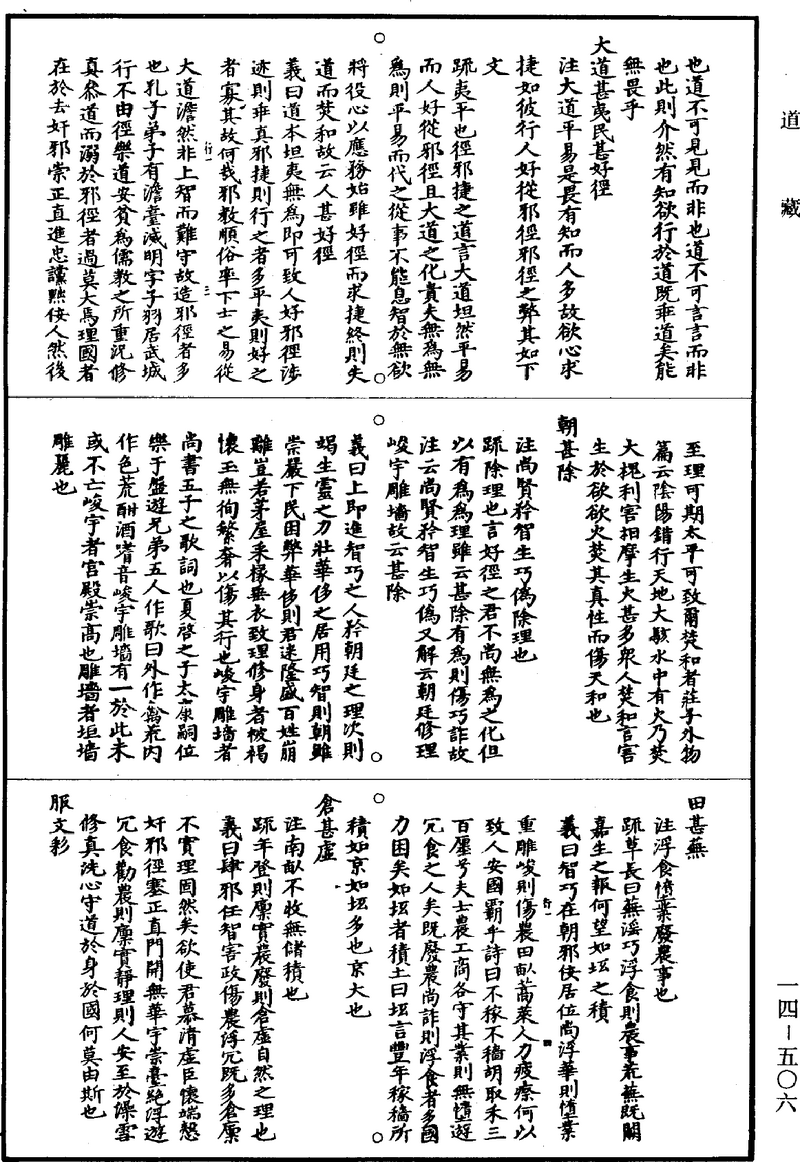 道藏
也道不可見見而非也道不可言言而非
也此則介然有知欲行於道既乖道矣能
無畏乎
大道甚夷民甚好徑
注大道平易是畏有知而人多故欲心求
捷如彼行人好從邪徑邪徑之弊其如下
文
疏夷平也徑邪捷之道言大道坦然平易
而人好從邪徑且大道之化貴夫無為無
為則平易而代之從事不能息智於無欲
將役心以應務始雖好徑而求捷終則失
道而焚和故云人甚好徑
義曰道本坦夷無為即可致人好邪徑涉
迹則乖真邪捷則行之者多平夷則好之
者寡其故何哉邪教順俗率下士之易從
大道澹然非上智而難守故造邪徑者多
也孔子弟子有澹臺滅明字子羽居武城
行不由徑樂道安貧為儒教之所重況修
真參道而溺於邪徑者過莫大焉理國者
在於去奸邪崇正直進忠讜黜佞人然後
至理可期太平可致爾焚和者莊子外物
篇云陰陽錯行天地大駭水中有火乃焚
大槐利害相摩生火甚多衆人焚和言害
生於欲欲火焚其真性而傷天和也
朝甚除
注尚賢矜智生巧偽除理也
疏除理也言好徑之君不尚無為之化但
以有為為理雖云甚除有為則傷巧詐故
注云尚賢矜智生巧偽又解云朝廷修理
峻宇雕墻故云甚除
義曰上即進智巧之人矜朝廷之理次則
竭生靈之力壯華侈之居用巧智則朝雖
崇嚴下民困弊華侈則君迷隆盛百姓崩
離豈若茅屋采椽垂衣致理修身者被褐
懷玉無徇繁奢以傷其行也峻宇雕墻者
尚書五子之歌詞也夏啓之子太康嗣位
樂于盤遊兄弟五人作歌曰外作禽荒內
作色荒酣酒嗜音峻宇雕墻有一於此未
或不亡峻宇者宮殿崇高也雕墻者垣墻
雕麗也
田甚蕪
注浮食惰業廢農事也
疏草長曰蕪滛巧浮食則農事荒蕪既闕
嘉生之報何望如坻之積
義曰智巧在朝邪佞居位尚浮華則惰業
重雕峻則傷農田畝蒿萊人力疲瘵何以
致人安國霸乎詩曰不稼不穡胡取禾三
百廛兮夫士農工商各守其業則無惰遊
冗食之人矣既廢農尚詐則浮食者多國
力困矣如坻者積土曰坻言豐年稼穡所
積如京如坻多也京大也
倉甚虛
注南畝不收無儲積也
疏年登則廩實農廢則倉虛自然之理也
義曰肆邪任智害政傷農浮冗既多倉廩
不實理固然矣欲使君慕清虛臣懷端慤
奸邪徑塞正直門開無華宇崇臺絕浮遊
冗食勸農則廩實靜理則人安至於澡雪
修真洗心守道於身於國何莫由斯也
服文彩
一四－五〇六